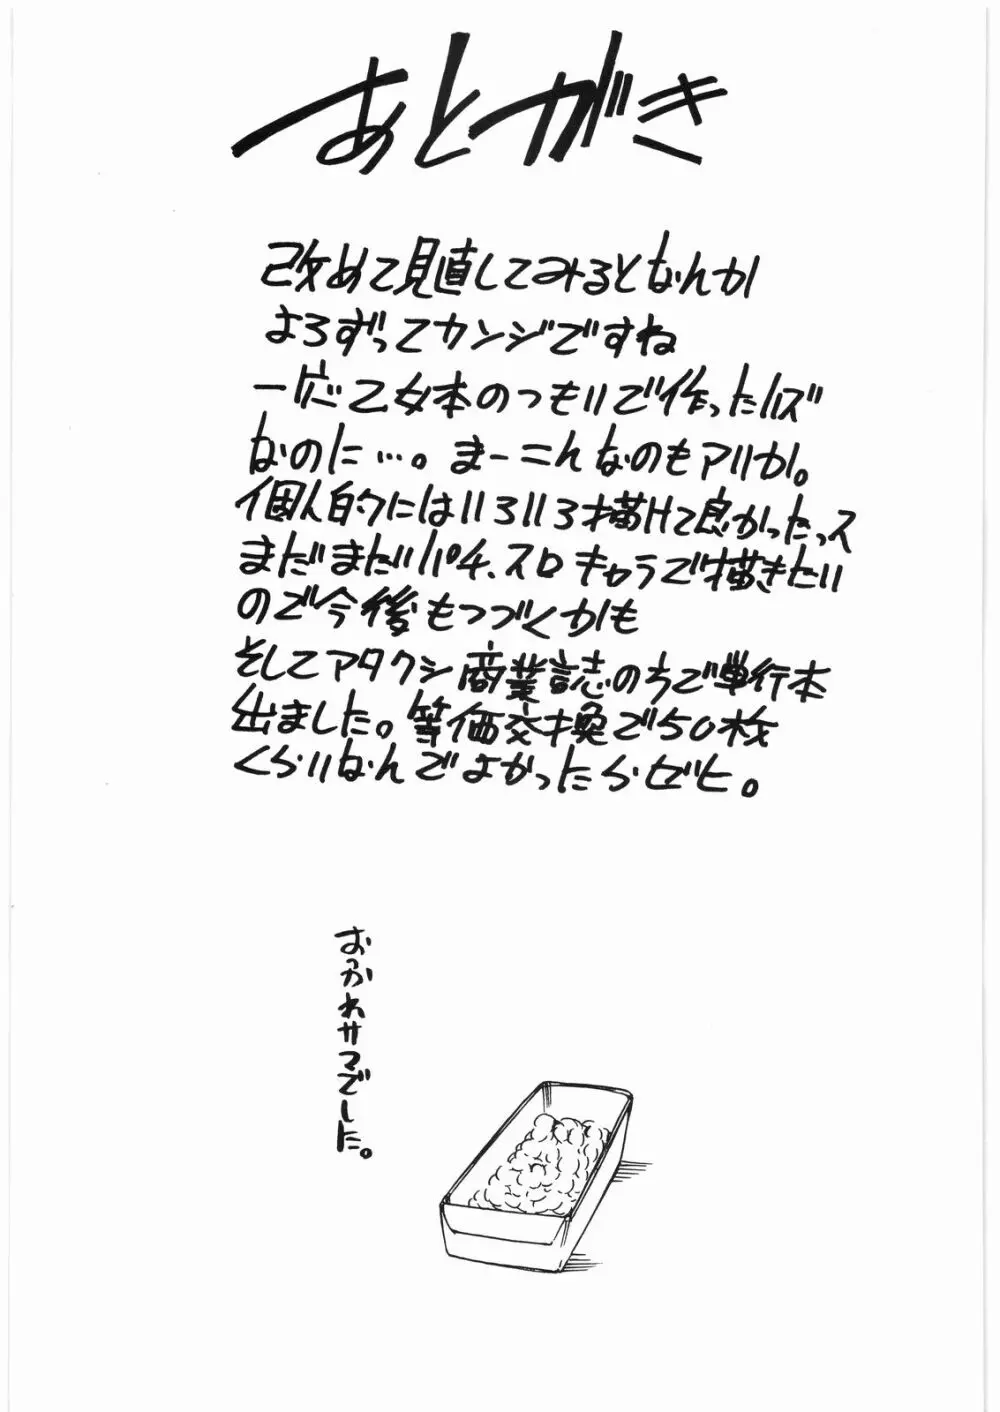 あとがき
改めて見直してみるとなんか
よろずってカンジですね
一応乙女本のつもりで作ったハズ
なのに…。まーこんなのもアリか。
個人的にはいろいろ描けて良かったっス
まだまだパチ、スロキャラで描きたい
ので今後もつづくかも
そしてアタクシ商業誌のちで単行本
出ました。等価交換で50枚
くらいなんでよかったらゼヒ。
おつかれサマでした。